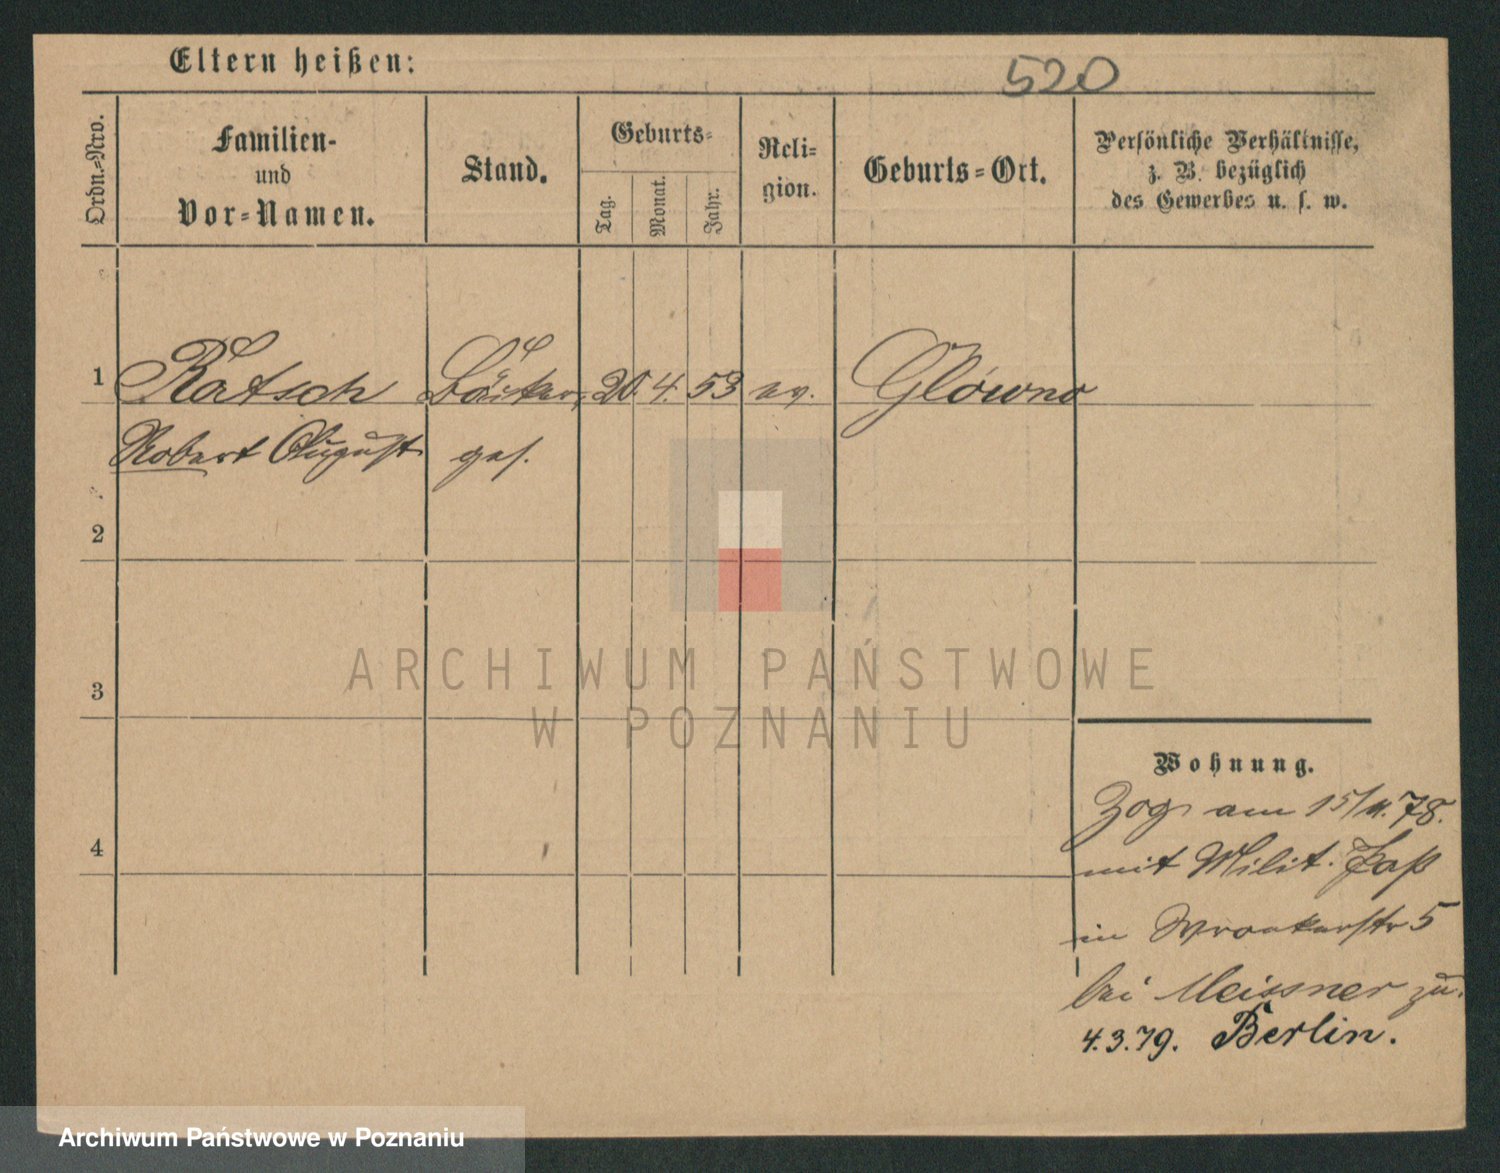 Eltern heißen:
520
Ordn.=Nro.
Familien-
und
Vor=Namen.
Stand.
Geburts=
Tag.
Monat.
Jahr.
Reli=
gion.
Geburts=Ort.
Persönliche Verhältnisse,
z. B. bezüglich
des Gewerbes u. s. w.
1 Ratsch Bäcker 20. 4. 53 ev. Glówno
Robert August ges.
2
3
4
ARCHIWUM PAŃSTWOWE
W POZNANIU
Wohnung.
Zog am 15/11.78.
mit Milit. Paß
in Wronkerstr 5
bei Meissner zu.
4.3.79. Berlin.
Archiwum Państwowe w Poznaniu